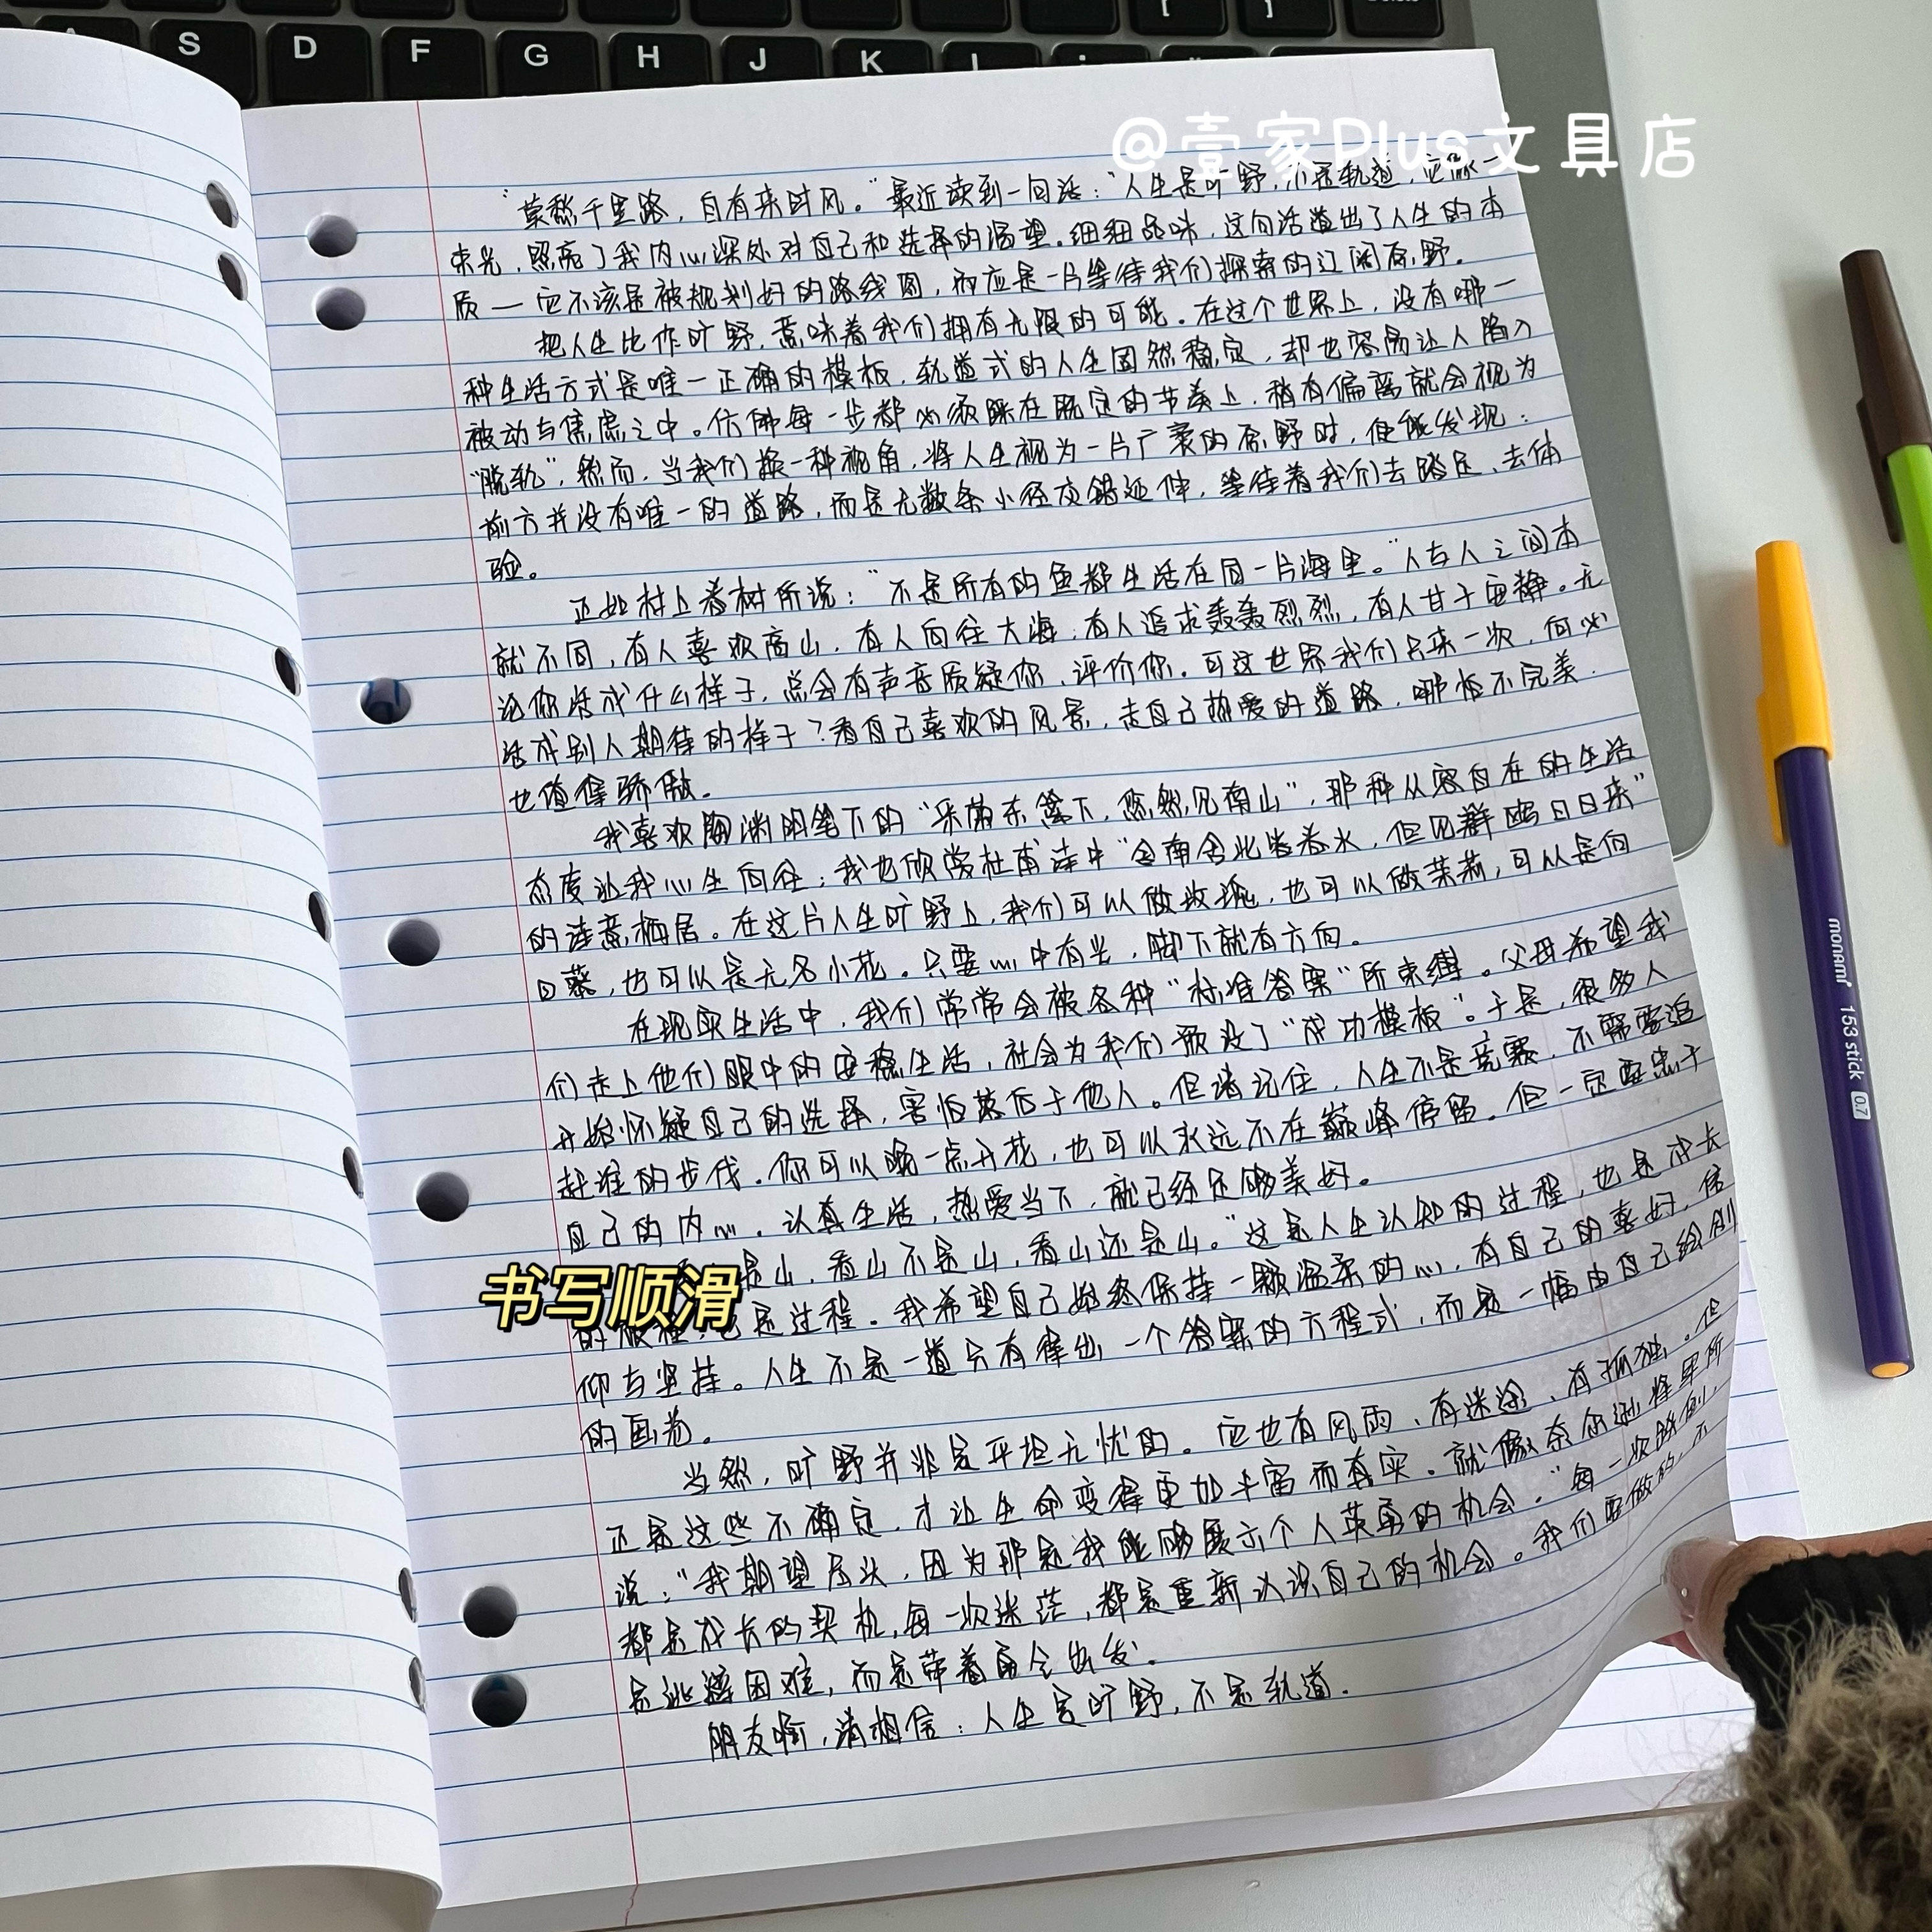 S D F G H J K L
@壹家Plus文具店
“莫愁千里路，自有来时风。”最近读到一句话：“人生是旷野，不是轨道，它像一
束光，照亮了我内心深处对自己和选择的渴望。细细品味，这句话道出了人生的本
质—它不该是被规划好的路线图，而应是一片等待我们探索的辽阔原野。
把人生比作旷野，意味着我们拥有无限的可能。在这个世界上，没有哪一
种生活方式是唯一正确的模板，轨道式的人生固然稳定，却也容易让人陷入
被动与焦虑之中。仿佛每一步都必须踩在既定的节奏上，稍有偏离就会视为
“脱轨”，然而，当我们换一种视角，将人生视为一片广袤的原野时，便能发现：
前方并没有唯一的道路，而是无数条小径交错延伸，等待着我们去踏足、去体
验。
正如村上春树所说：“不是所有的鱼都生活在同一片海里。”人与人之间本
就不同，有人喜欢高山，有人向往大海；有人追求轰轰烈烈，有人甘于安静。无
论你活成什么样子，总会有声音质疑你、评价你。可这世界我们只来一次，何必
活成别人期待的样子？看自己喜欢的风景，走自己热爱的道路，哪怕不完美，
也值得骄傲。
我喜欢陶渊明笔下的“采菊东篱下，悠然见南山”，那种从容自在的生活
态度让我心生向往；我也欣赏杜甫诗中“舍南舍北皆春水，但见群鸥日日来”
的诗意栖居。在这片人生旷野上，我们可以做玫瑰，也可以做茉莉，可以是向
日葵，也可以是无名小花。只要心中有光，脚下就有方向。
在现实生活中，我们常常会被各种“标准答案”所束缚。父母希望我
们走上他们眼中的安稳生活，社会为我们预设了“成功模板”。于是，很多人
开始怀疑自己的选择，害怕落后于他人。但请记住，人生不是竞赛，不需要追
赶谁的步伐。你可以晚一点开花，也可以永远不在巅峰停留。但一定要忠于
自己的内心，认真生活，热爱当下，就已经足够美好。
是山，看山不是山，看山还是山。”这是人生认知的过程，也是成长
的 是过程。我希望自己始终保持一颗温柔的心，有自己的喜好，信
仰与坚持。人生不是一道只有得出一个答案的方程式，而是一幅由自己绘制
的画卷。
当然，旷野并非是平坦无忧的。它也有风雨、有迷途、有孤独。但
正是这些不确定，才让生命变得更加丰富而真实。就像杰尔逊怪早所
说：“我期望层次，因为那是我能够展示个人英勇的机会。”每一次跌倒，
都是成长的契机，每一次迷茫，都是重新认识自己的机会。我们要做的，不
是逃避困难，而是带着勇气出发。
朋友啊，请相信：人生是旷野，不是轨道。
书写顺滑
monami 153 stick 0.7